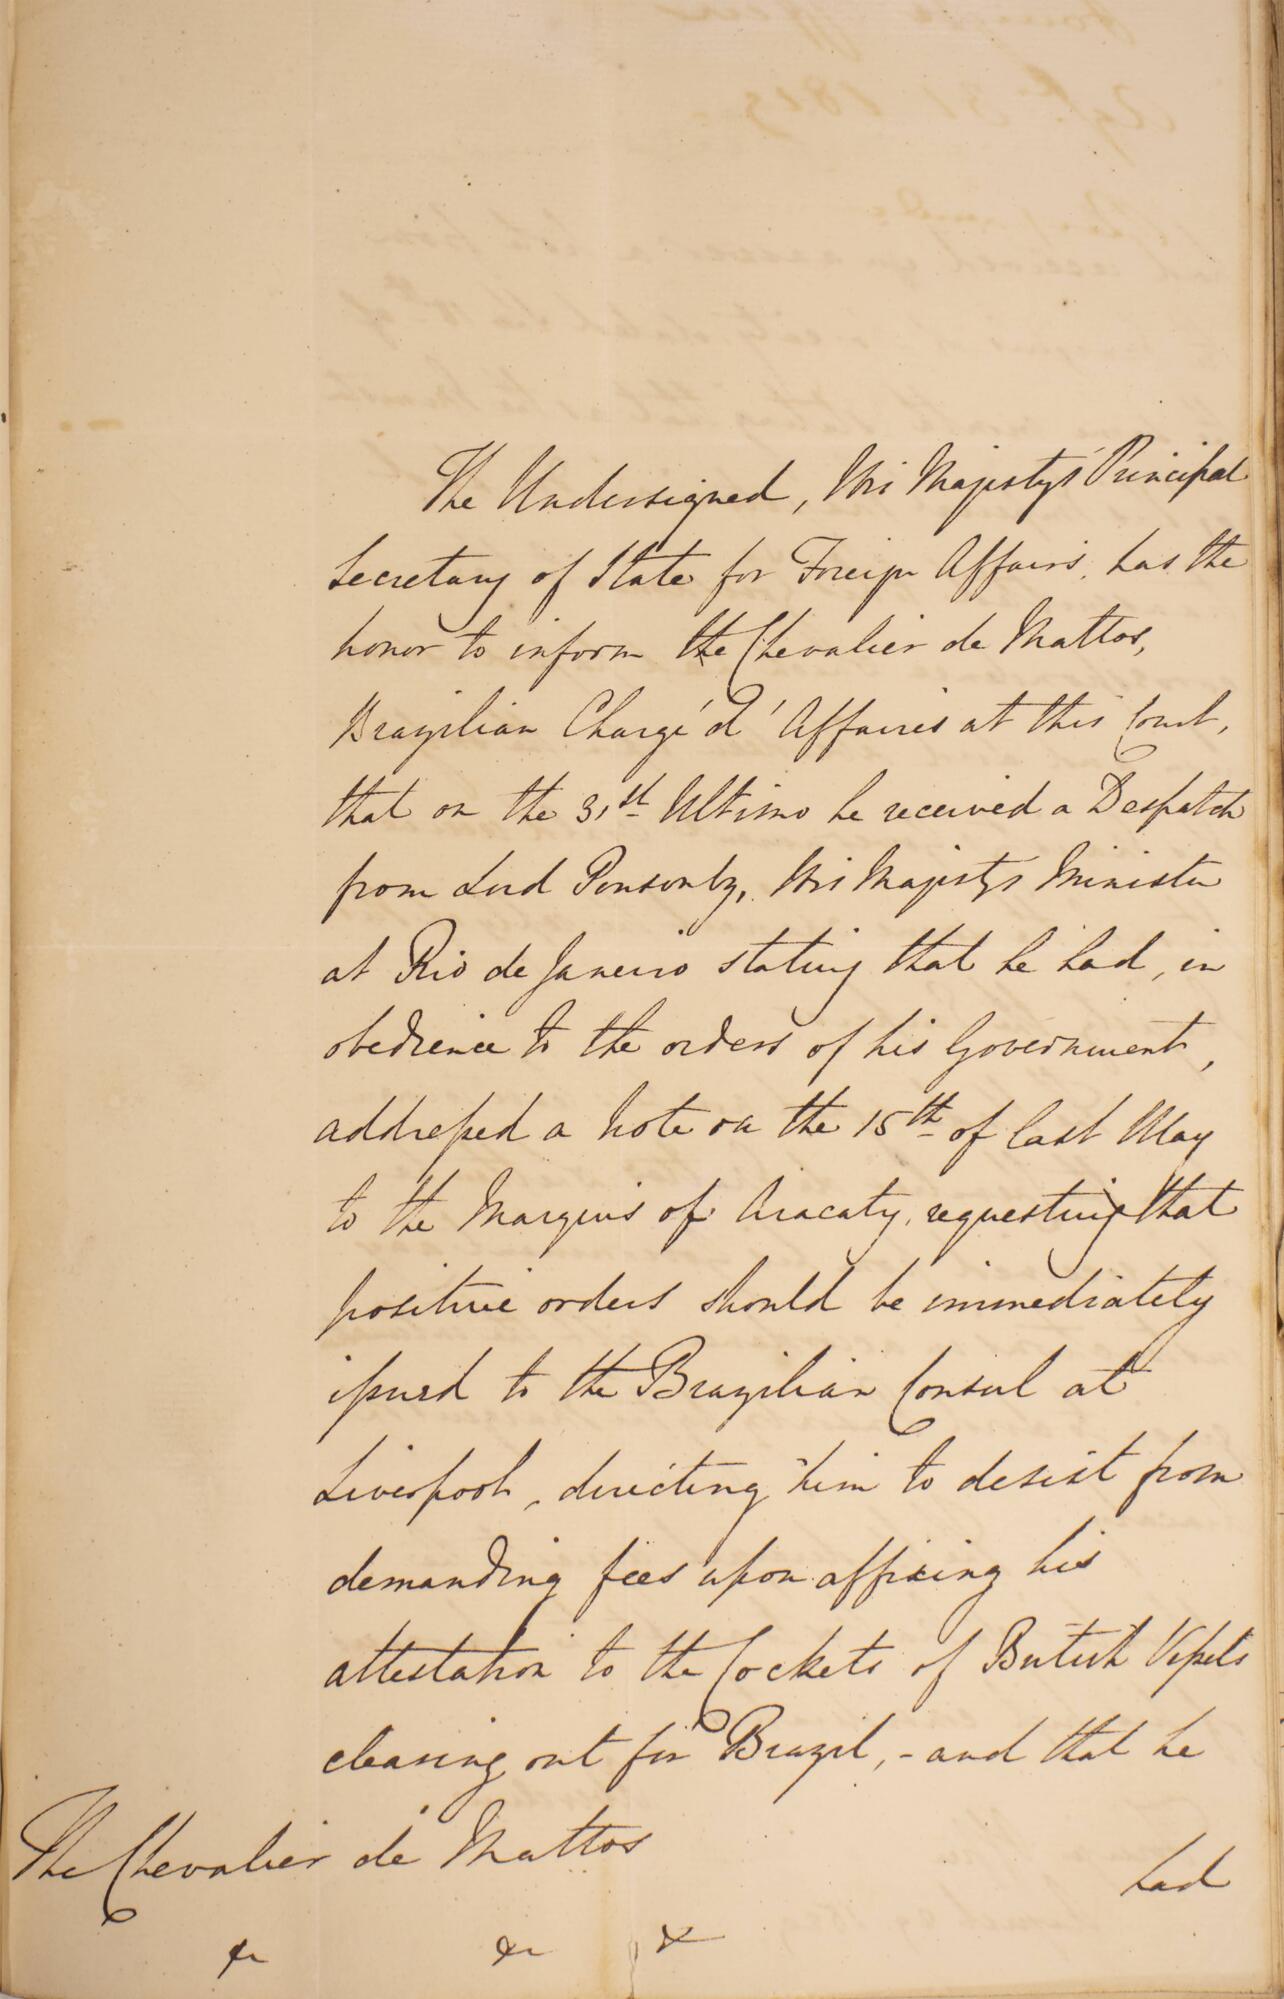 The Undersigned, His Majesty's Principal
Secretary of State for Foreign Affairs, has the
honor to inform the Chevalier de Mattos,
Brazilian Chargé d'Affaires at this Court,
that on the 31st Ultimo he received a Despatch
from Lord Ponsonby, His Majesty's Minister
at Rio de Janeiro stating that he had, in
obedience to the orders of his Government,
addressed a Note on the 15th of last May
to the Marquis of Aracaty, requesting that
positive orders should be immediately
issued to the Brazilian Consul at
Liverpool, directing him to desist from
demanding fees upon affixing his
attestation to the Cockets of British Vessels
clearing out for Brazil, - and that he
had
The Chevalier de Mattos
&c &c &c